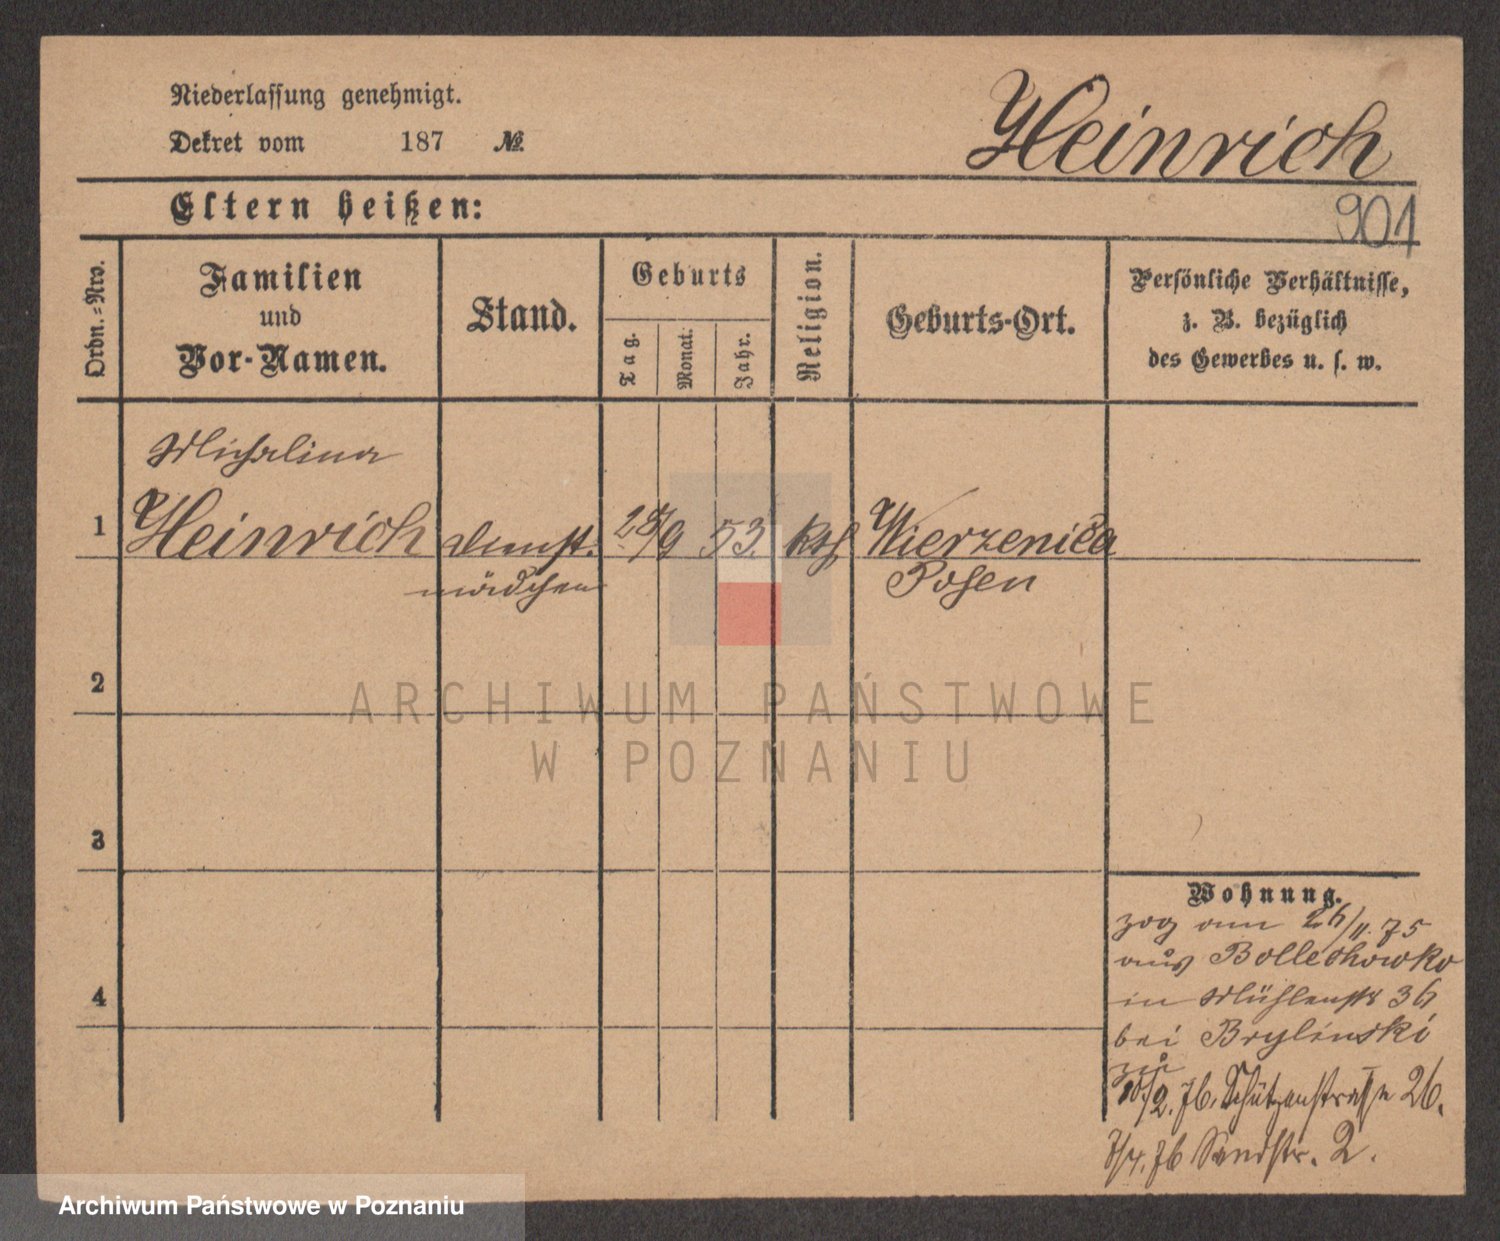 Niederlassung genehmigt.
Dekret vom 187 №
Heinrich
Eltern heißen:
901
Ordn.-Nro.
Familien
und
Vor-Namen.
Stand.
Geburts
Tag.
Monat.
Jahr.
Religion.
Geburts-Ort.
Persönliche Verhältnisse,
z. B. bezüglich
des Gewerbes u. s. w.
Michalina
1 Heinrich Dienst- /9 53. kth Wierzenica
mädchen Posen
2
ARCHIWUM PAŃSTWOWE
W POZNANIU
3
Wohnung.
zog am 26/11.75
aus Bollechowko
in Mühlenstr 36
bei Brylinski
zu
4
10/2.76. Schützenstraße 26.
/4.76 Sandstr. 2.
Archiwum Państwowe w Poznaniu